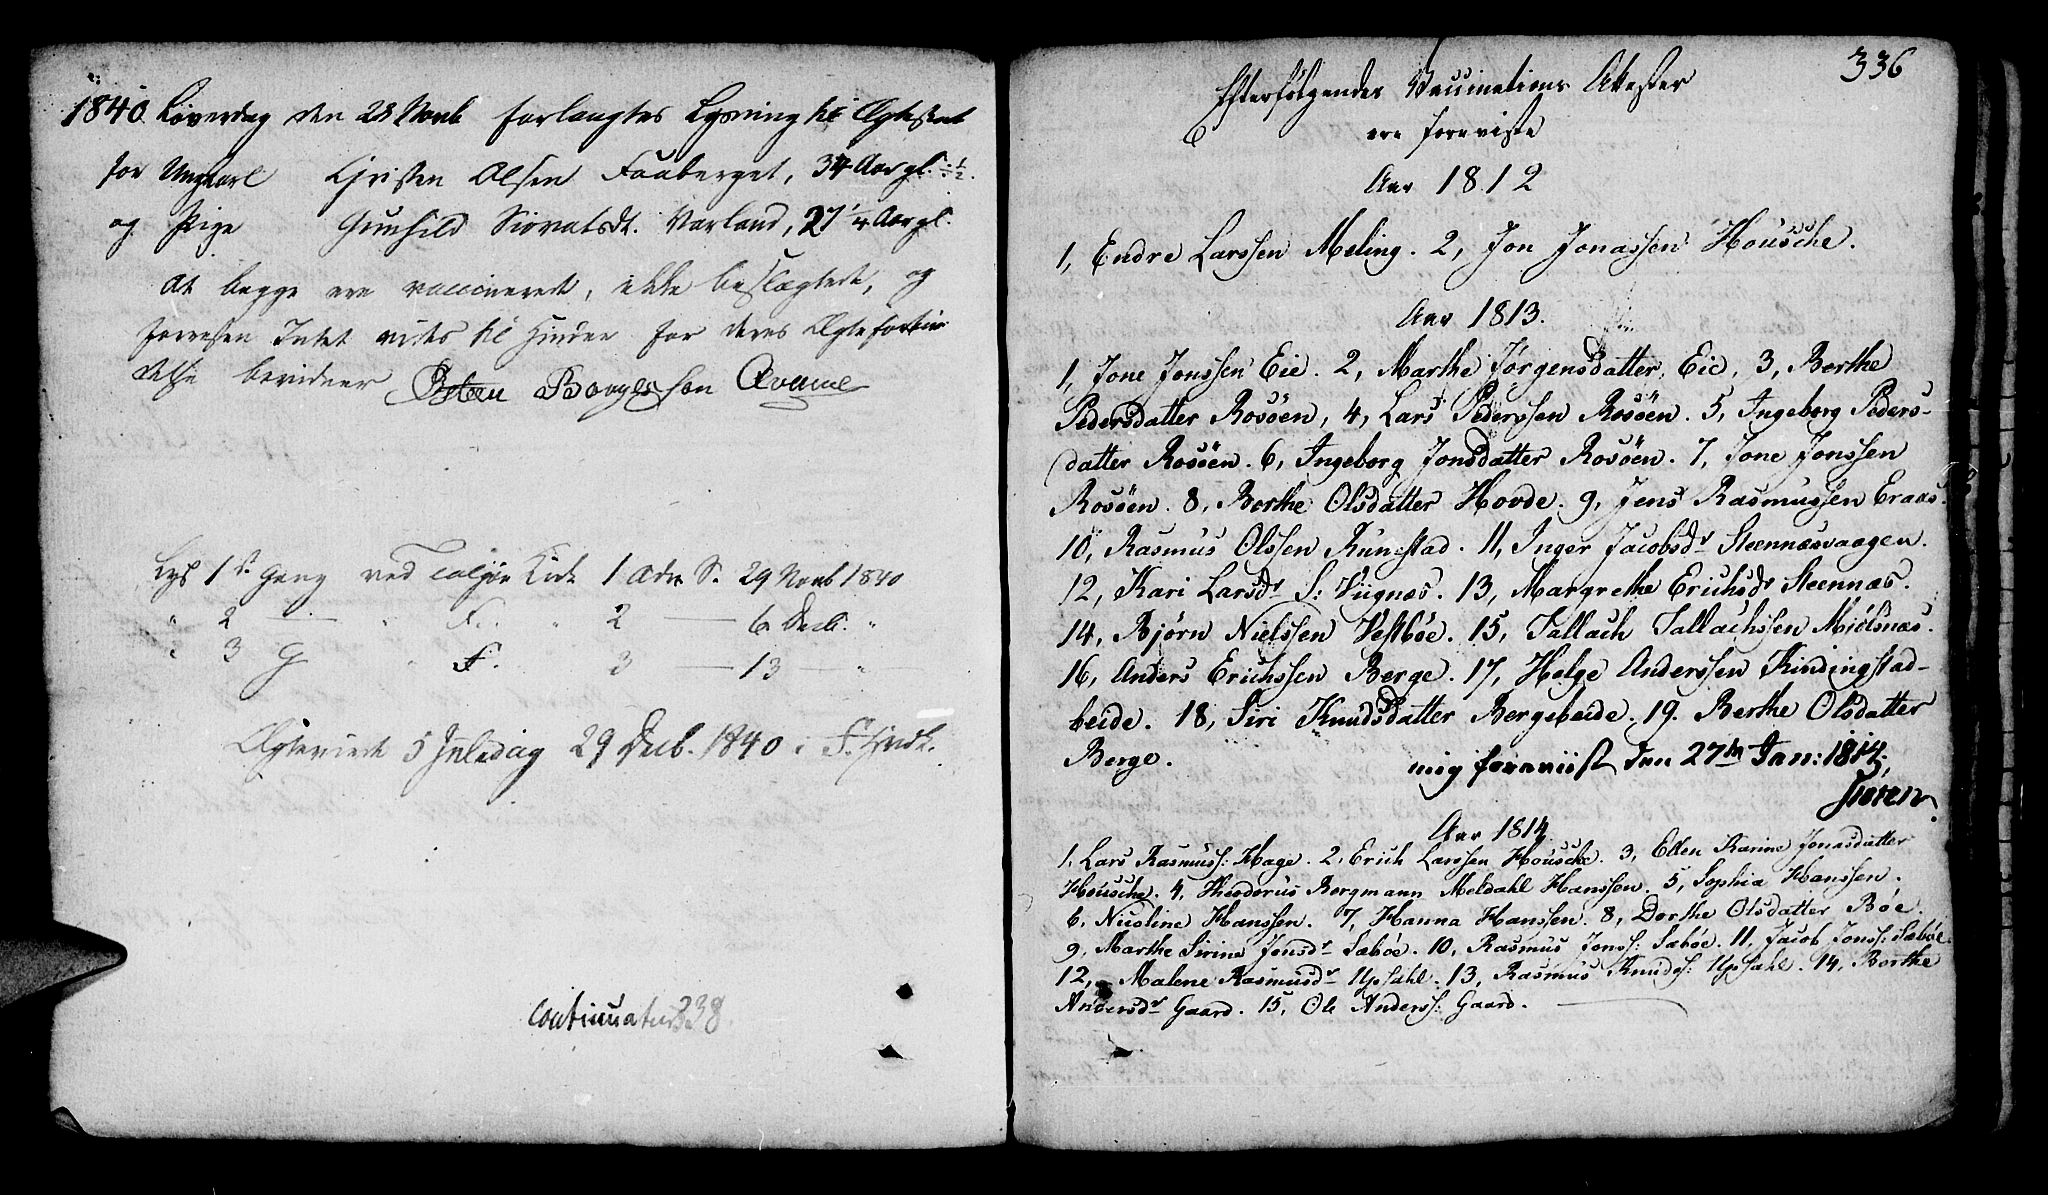 1840. Löverdag den 28 Novb forlangtes Lysning til Ægteskab
for Ungkarl Christen Olsen Faaberget, 34 Aar gl. ÷ ½.
og Pige Gunhild Siovatsdt. Varland, 27 ¼ Aar gl.
At begge ere vaccinerede, ikke beslægtede, og
forresten Intet vides til Hinder for deres Ægteforbin
delse bevidner Østen Børgesson
Lyst 1st Gang ved Talgöe Kirk 1 Adv. S. 29 Novb 1840
" 2 — " F. " 2 — 6 Decb. "
" 3 G " F. 3 — 13 — "
Ægteviede 5 Juledag 29 Decb. 1840 i F.
continuatur 338.
336
Efterfölgendes Vaccinations Attester
ere foreviste
Aar 1812
1, Endre Larssen Meling. 2, Jon Jonassen Houssche.
Aar 1813.
1, Jone Jonssen Eie. 2, Marthe Jørgensdatter Eie, 3, Berthe
Pedersdatter Rosöen, 4, Lars Pederssen Rosöen. 5, Ingeborg Peders-
datter Rosöen. 6, Ingeborg Jonsdatter Rosöen. 7, Jone Jonssen
Rosöen. 8, Berthe Olsdatter Hovde. 9, Jens Rasmussen Eraas.
10, Rasmus Olssen Rünestad. 11, Inger Jacobsdr Steennæsvaagen.
12, Kari Larsdr S: Viignæs. 13, Margrethe Erichsdr Steennæs.
14, Bjørn Nielssen Vestbøe. 15, Tallach Tallachssen Miölsnæs.
16, Anders Erichssen Berge. 17, Helge Anderssen Kindingstad-
beide. 18, Siri Knudsdatter Bergebeide. 19. Berthe Olsdatter
Berge. mig foreviist den 27de Jan: 1814.
Søren
Aar 1814.
1, Lars Rasmuss: Hage. 2, Erich Larssen Houssche. 3, Ellen Karine Jonasdatter
Houssche. 4, Theodorus Bergmann Meldahl Hanssen. 5, Sophia Hanssen.
6, Nicoline Hanssen. 7, Hanna Hanssen. 8, Dorthe Olsdatter Bøe.
9, Marthe Sirine Jonsdr Sæbøe. 10, Rasmus Jonss: Sæbøe. 11, Jacob Jonss: Sæbøe.
12, Malene Rasmusdr Upsahl. 13, Rasmus Knudss: Upsahl. 14, Berthe
Andersdr Gaard. 15, Ole Anderss: Gaard.